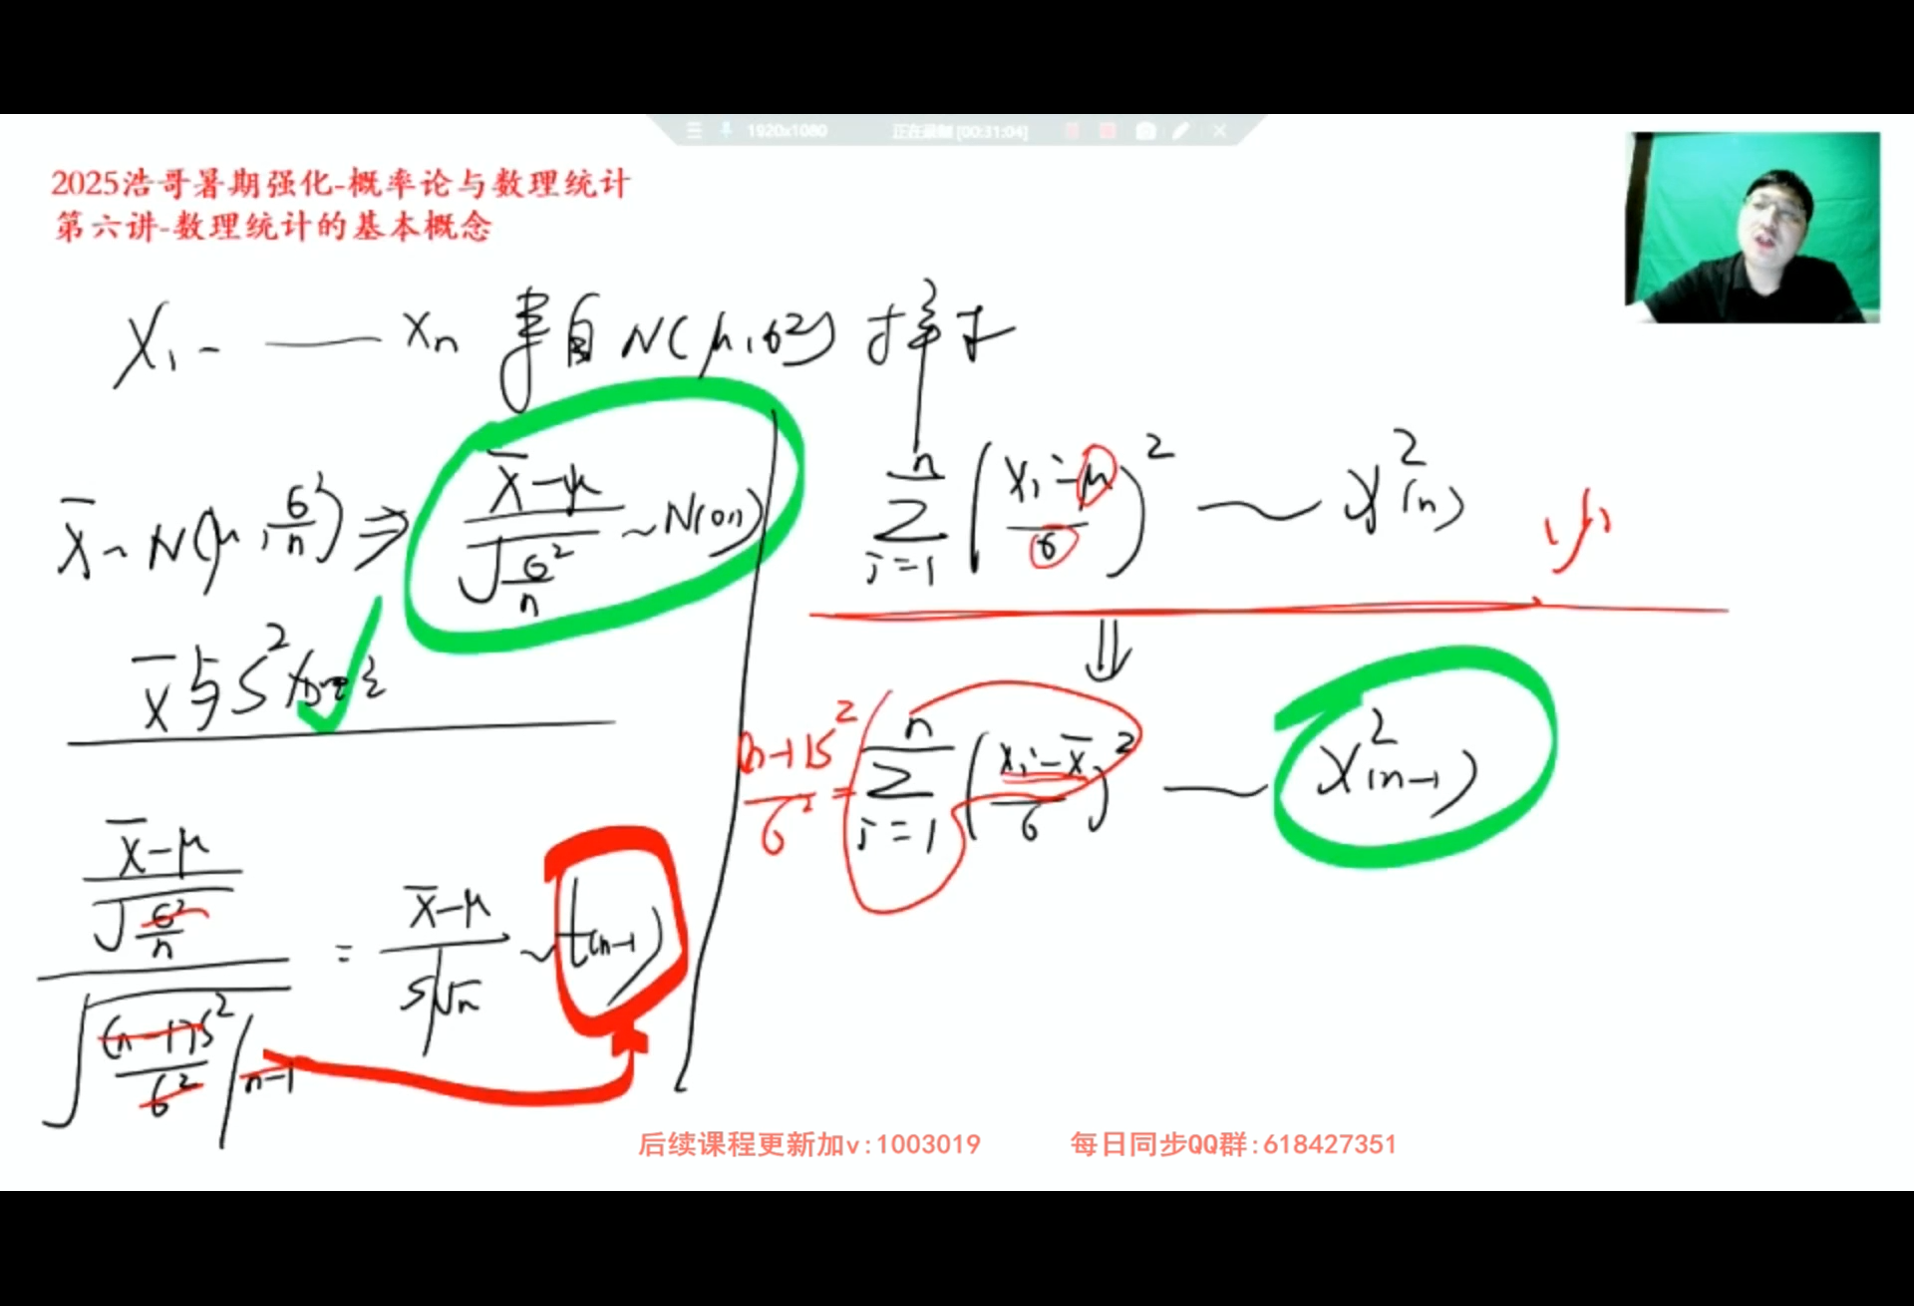 1920x1080 正在录制 [00:31:04]
2025浩哥暑期强化-概率论与数理统计
第六讲-数理统计的基本概念
X₁ - —— Xₙ 来自 N(μ,σ²) 样本
X̄ ~ N(μ, σ²/n) ⇒ (X̄-μ)/√(σ²/n) ~ N(0,1)
X̄与S²
(X̄-μ)/√(σ²/n) / √((n-1)S²/σ² / n-1) = (X̄-μ)/(S/√n) ~ t(n-1)
∑ᵢ₌₁ⁿ ((Xᵢ-μ)/σ)² ~ χ²(n)
⇓
(n-1)S²/σ² = ∑ᵢ₌₁ⁿ ((Xᵢ-X̄)/σ)² ~ χ²(n-1)
后续课程更新加v:1003019 每日同步QQ群:618427351